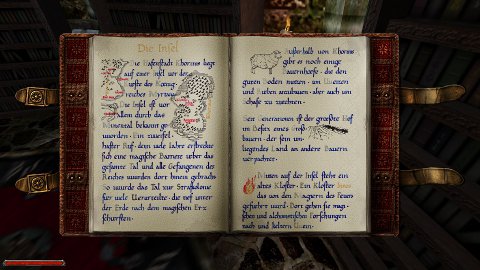 Die Insel
Die Hafenstadt Khorinis liegt
auf einer Insel vor der
Küste des Koenig-
reiches Myrtana.
Die Insel ist vor
allem durch das
Minental bekannt ge
worden. Ein zweifel
hafter Ruf, denn viele Jahre erstreckte
sich eine magische Barriere ueber das
gesamte Tal und alle Gefangenen des
Reiches wurden dort hinein gebracht.
So wurde das Tal zur Strafkolonie
fuer viele Verurteilte, die tief unter
der Erde nach dem magischen Erz
schuerften.
Außerhalb von Khorinis
gibt es noch einige
Bauernhoefe, die den
guten Boden nutzen, um Weizen
und Rueben anzubauen, aber auch um
Schafe zu zuechten.
Seit Generationen ist der groeßte Hof
im Besitz eines Groß-
bauern, der sein um-
liegendes Land an andere Bauern
verpachtet.
Mitten auf der Insel steht ein
altes Kloster. Ein Kloster Innos
das von den Magiern des Feuers
gefuehrt wird. Dort gehen sie magi-
schen und alchemistischen Forschungen
nach und keltern Wein.